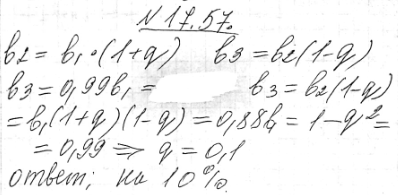 №17.57.
b2 = b1·(1+q) b3 = b2(1-q)
b3 = 0,99b1 = b3 = b2(1-q)
= b1(1+q)(1-q) = 0,88b1 = 1-q² =
= 0,99 ⇒ q = 0,1
ответ; на 10%